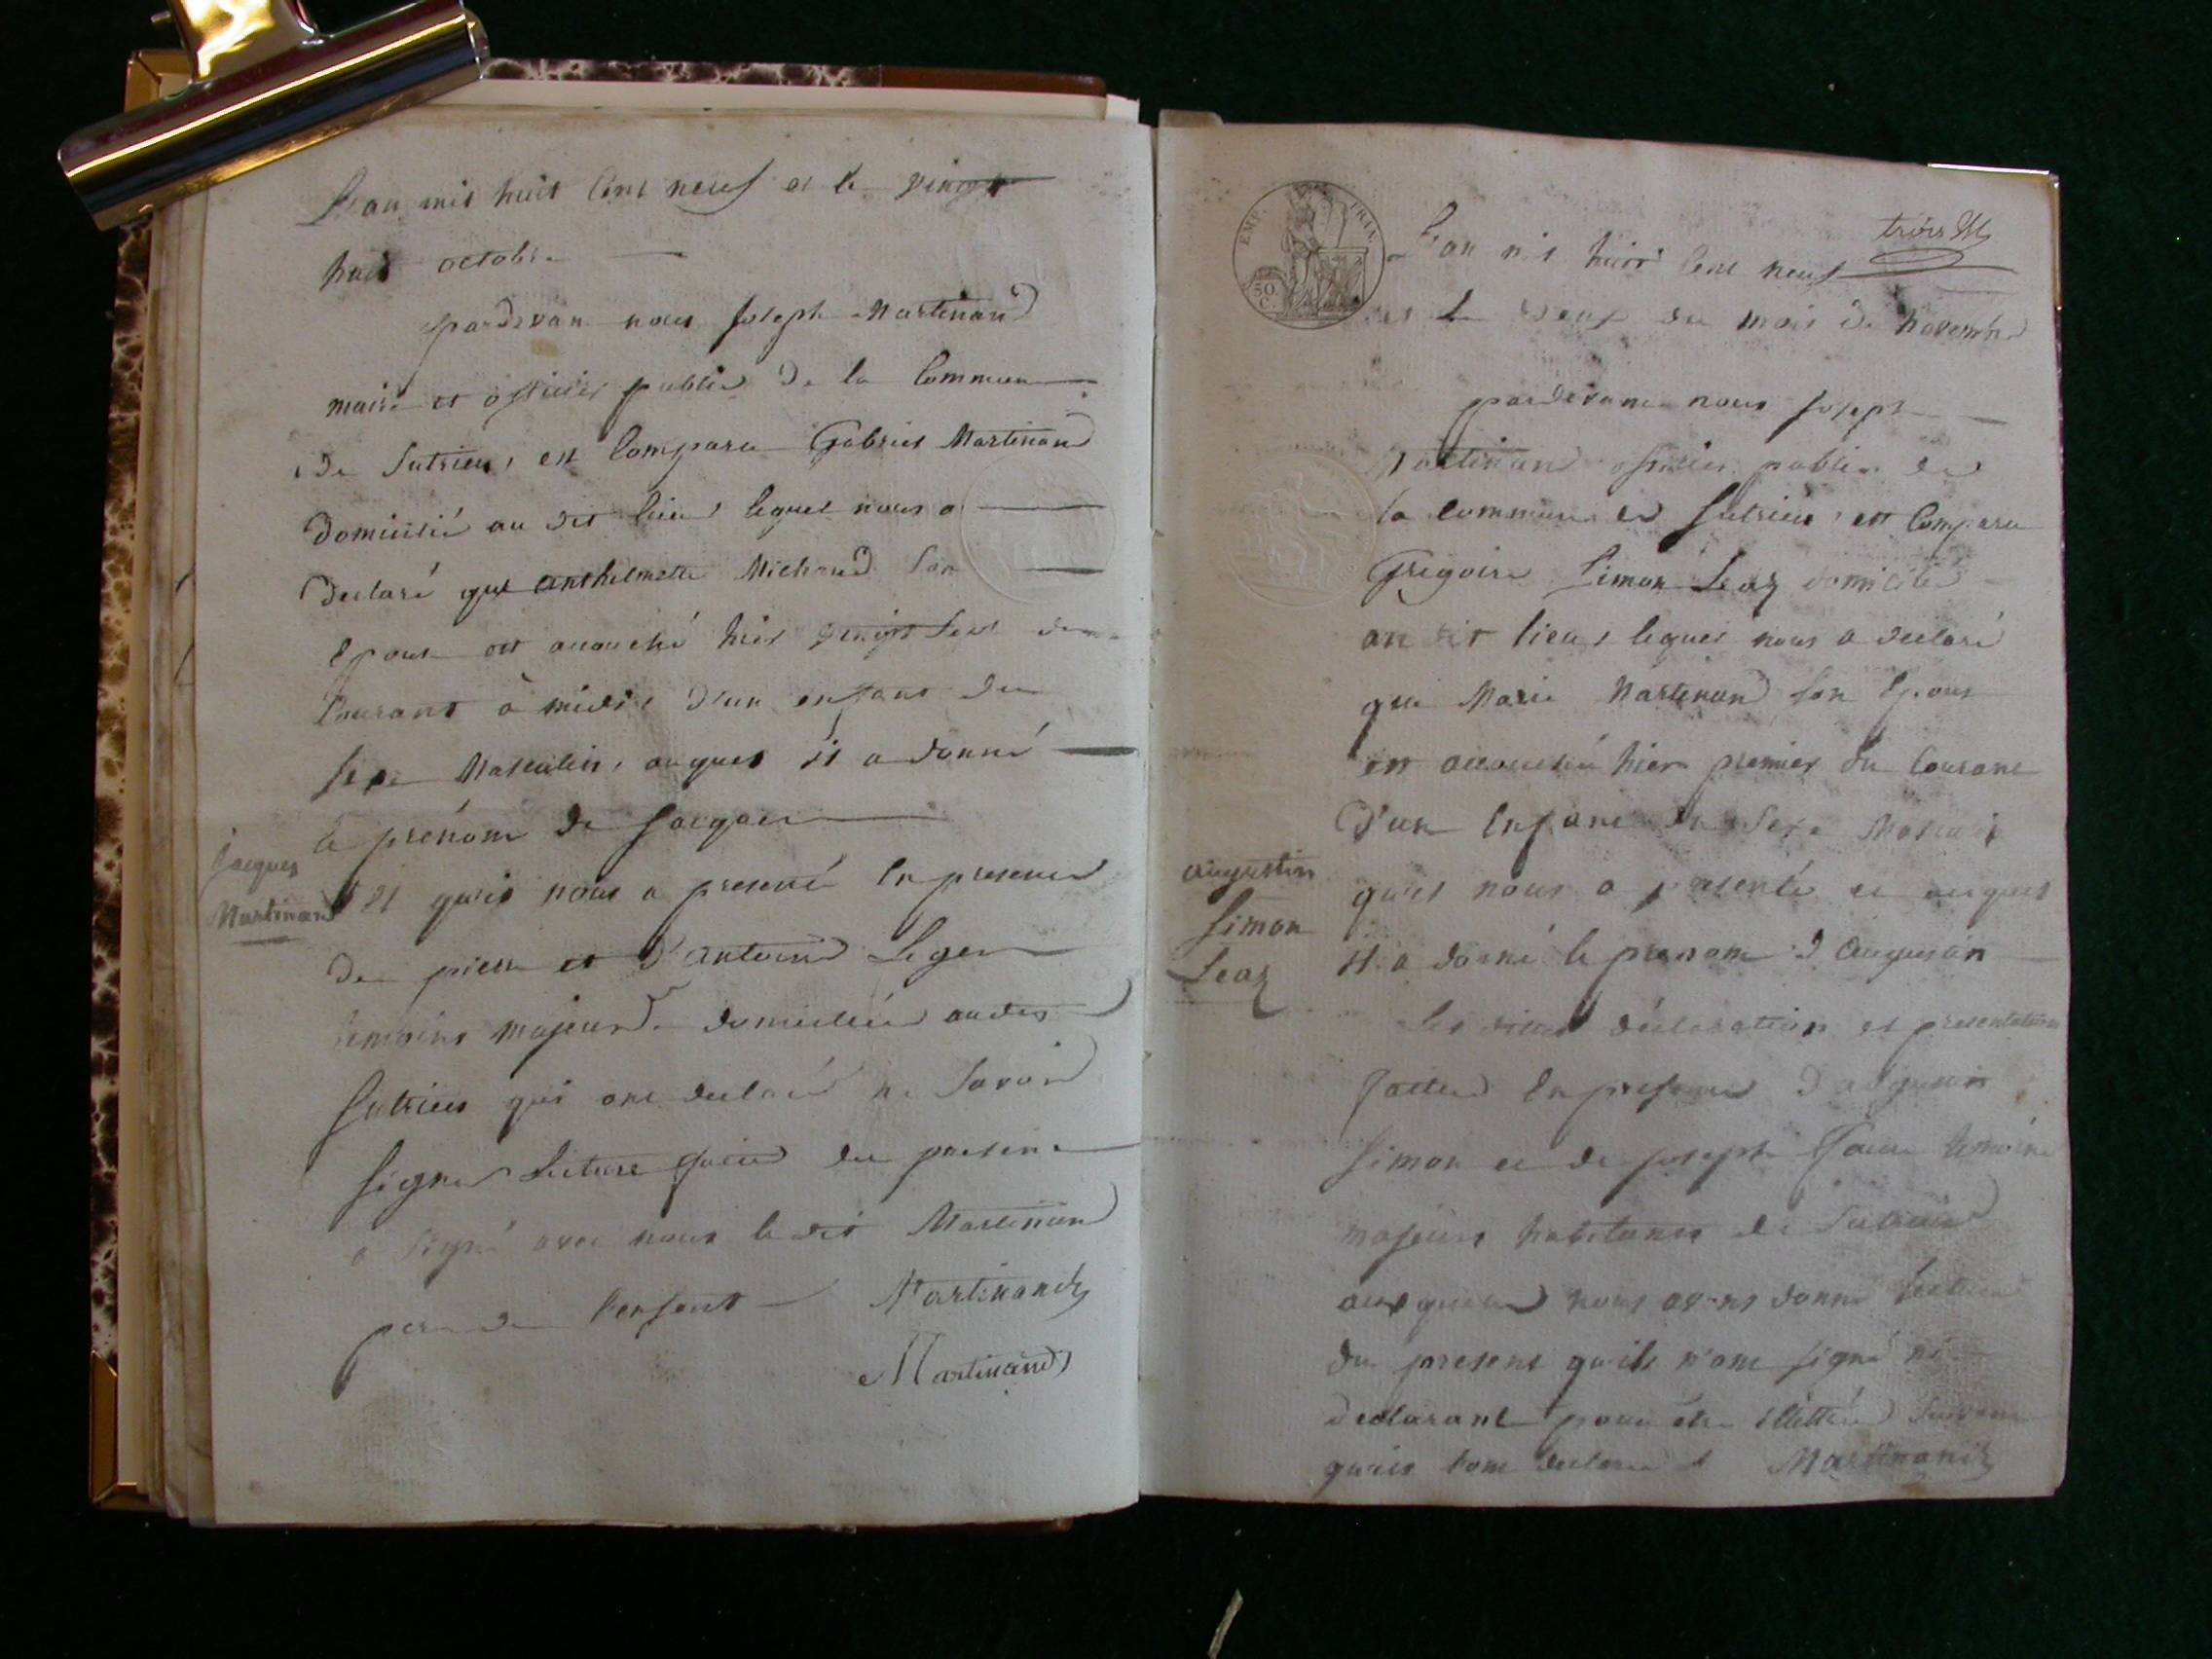 L'an mil huit cent neuf et le vingt
huit octobre
pardevan nous Joseph Martinand
maire et officier public de la Commune
de Sutrieu, est Comparu Gabriel Martinand
Domicilié au dit lieu lequel nous a
declaré que anthelmette Michaud son
Epouse est accouché hier vingt sept du
Courant à midi d'un enfant du
sexe Masculin, auquel il a donné
le prénom de Jacques
Jacques
Martinand
Et qu'il nous a presenté En presence
De pierre et d'antoine Leger
temoins majeurs domiciliés audit
Sutrieu qui ont declaré ne Savoir
signer Lecture faite du present
a signé avec nous le dit Martinand
pere de l'enfant Martinand
Martinand
EMP. FRAN.
50
C.
trois
L'an mil huit Cent neuf
et le deux du mois de novembre
pardevant nous Joseph
Martinand officier public de
la commune de Sutrieu, est Comparu
Gregoire Simon Leaz domicilié
au dit lieu, lequel nous a declaré
que Marie Martinand son Epouse
est accouchée hier premier du Courant
D'un Enfant du Sexe Masculin
qu'il nous a presenté et auquel
il a donné le prenom d'augustin
augustin
Simon
Leaz
Les dites déclaration et presentation
faites En presence D'augustin
Simon et de Joseph temoins
majeurs habitants de Sutrieu
auxquels nous avons donné lecture
du present qu'ils n'ont signé ni
declarant pour être illettrés suivant
qu'ils l'ont declaré Martinand